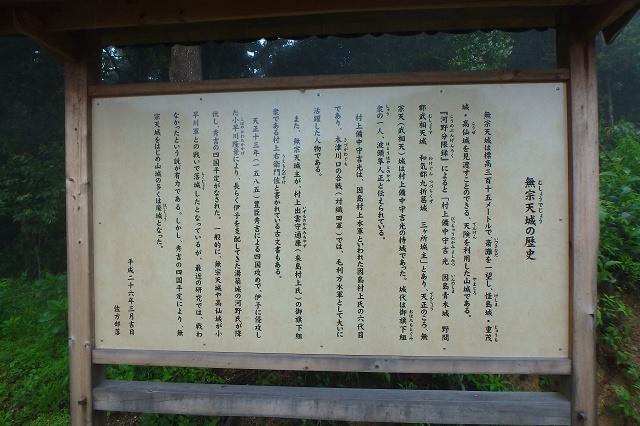 無宗天城の歴史
無宗天城は標高三百十五メートルで、斎灘を一望し、怪島城・重茂
城・高仙城を見渡すことのできる、天険を利用した山城である。
『河野分限録』によると「村上備中守吉光 因島青木城 野間
郡武相天城 和気郡九折葛城 三ヶ所城主」とあり、天正のころ、無
宗天(武相天)城は村上備中守吉光の持城であった。城代は御旗下組
衆の一人、波頭隼人正と伝えられている。
村上備中守吉光は、因島村上水軍といわれた因島村上氏の六代目
であり、木津川口の合戦(対織田軍)では、毛利方水軍として大いに
活躍した人物である。
また、無宗天城主が、村上出雲守通康(来島村上氏)の御旗下組
衆である村上右衛門佐と書かれている古文書もある。
天正十三年(一五八五)豊臣秀吉による四国攻めで、伊予に侵攻し
た小早川隆景により、長らく伊予を支配してきた湯築城の河野氏が降
伏し、秀吉の四国平定がなされた。一般的に、無宗天城や高仙城が小
早川軍との戦いで落城したとなっているが、最近の研究では、戦わ
なかったという説が有力である。しかし、秀吉の四国平定により、無
宗天城をはじめ山城の多くは廃城となった。
平成二十六年三月吉日
佐方部落